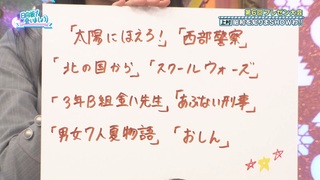 「太陽にほえろ!」「西部警察」
「北の国から」「スクールウォーズ」
「3年B組金八先生」「あぶない刑事」
「男女7人夏物語」「おしん」